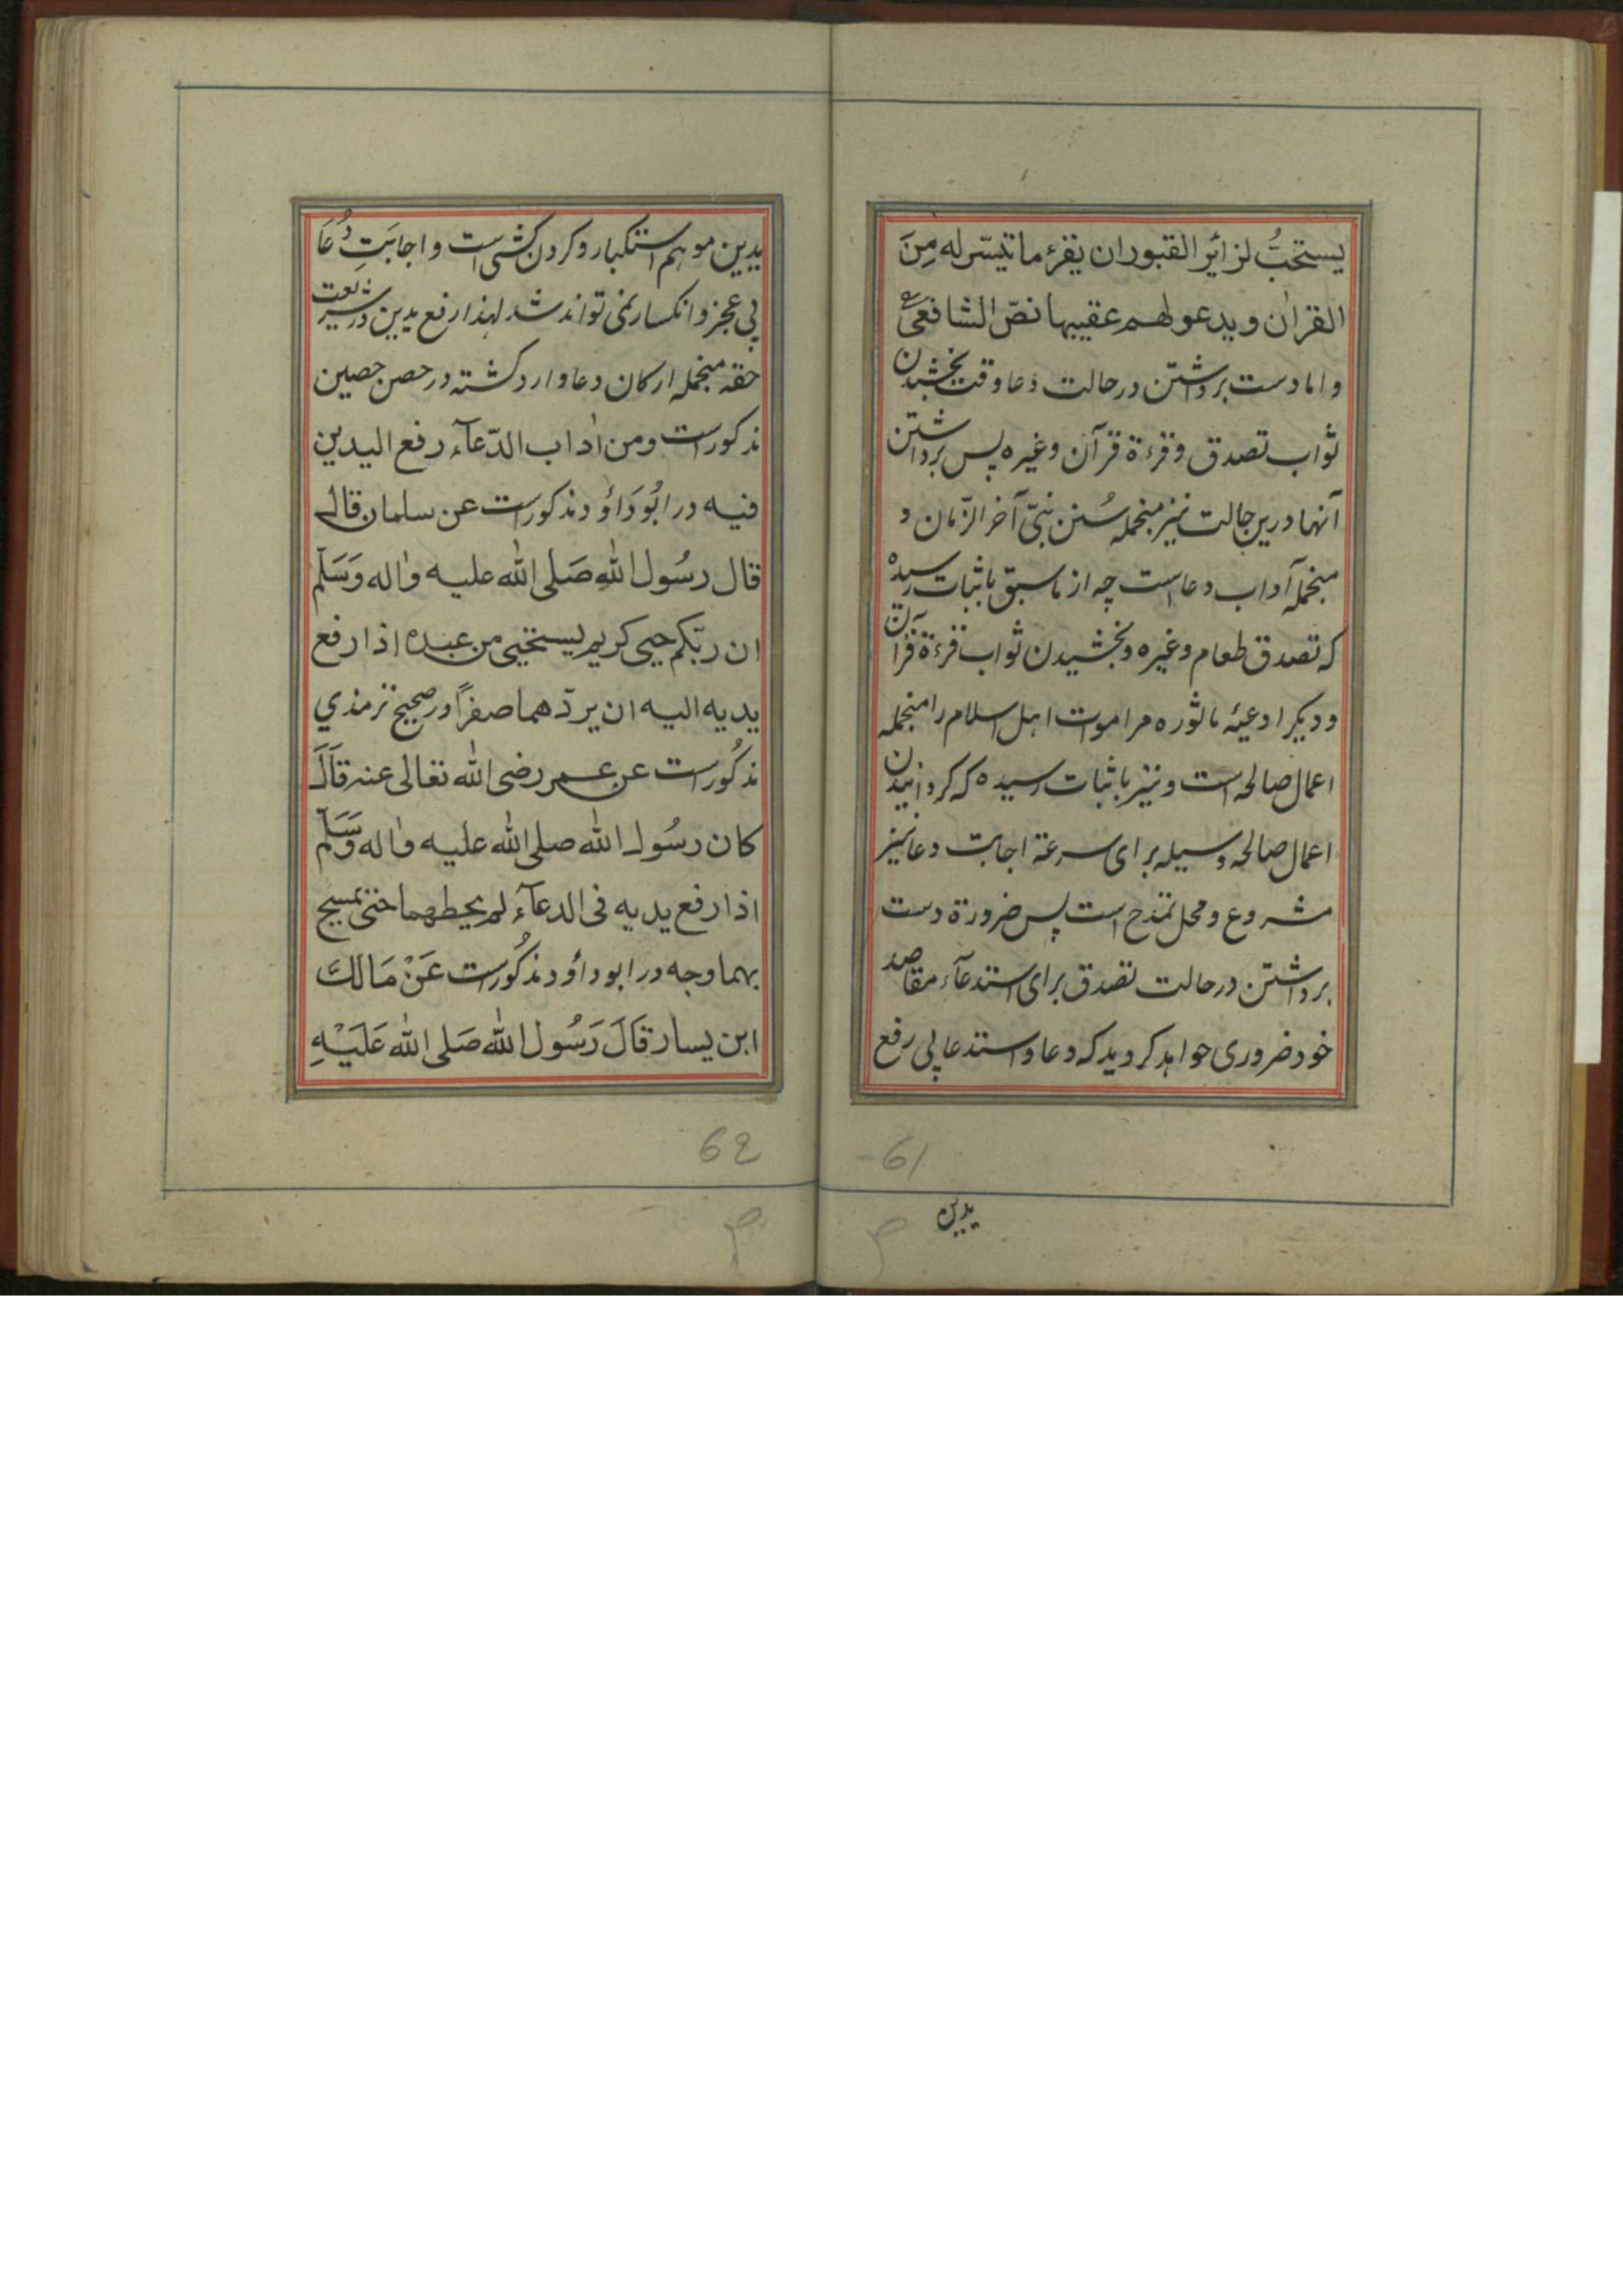 يستحبُّ لزائر القبور ان يقرء ما تيسّر له مِنَ
القراٰن و يدعو لهم عقيبها نصّ الشافعیؒ
و اما دست برداشتن در حالت دعا وقت بخشیدن
ثواب تصدق و قرءة قرآن و غیره پس برداشتن
آنها درین حالت نیز منجمله سُنن نبیّ آخر الزّمان و
منجمله آداب دعاست چه از ما سبق باثبات رسیدہ
که تصدق طعام و غیره و بخشیدن ثواب قرءة قرآن
و دیکر ادعیئه ماثوره مر اموت اهل اسلام را منجمله
اعمال صالحه است و نیز باثبات رسیده که کردانیدن
اعمال صالحه وسیله برای سرعة اجابت دعا نیز
مشروع و محل تمدح است پس ضرورة دست
برداشتن در حالت تصدق برای استدعآء مقاصد
خود ضروری خواهد کردید که دعا و استدعا بی رفع
یدین
61
یدین موهم استکبار و کردن کشی است و اجابَتِ دُعَا
بی عجز و انکسار نمی تواند شد لهذا رفع یدین در شریعت
حقه منجمله ارکان دعا وارد کشته در حصن حصین
مذکور است و من اٰداب الدّعآء رفع اليدين
فيه در ابُو دَاؤد مذکور است عن سلمان قال
قال رسُول الله صَلى الله عليه واٰله وَسَلّم
ان ربّكم حيي كريم يستحيي من عبده اذا رفع
يديه اليه ان يردّهما صفرًا در صحیح ترمذي
مذکُور است عن عمر رضى الله تعالى عنه قَالَ
كان رسُول الله صلى الله عليه واٰله وَسَلّم
اذا رفع يديه فى الدعآء لم يحطهما حتى يمسح
بهما وجه در ابو داؤد مذکُور است عَنْ مَالك
ابن يسار قَالَ رَسُول الله صَلى الله عَلَيْهِ
62